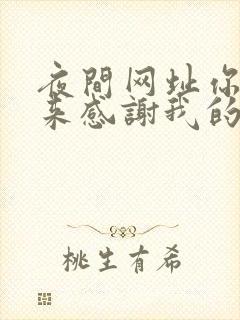 夜間网址你
来感謝我的
桃生有希